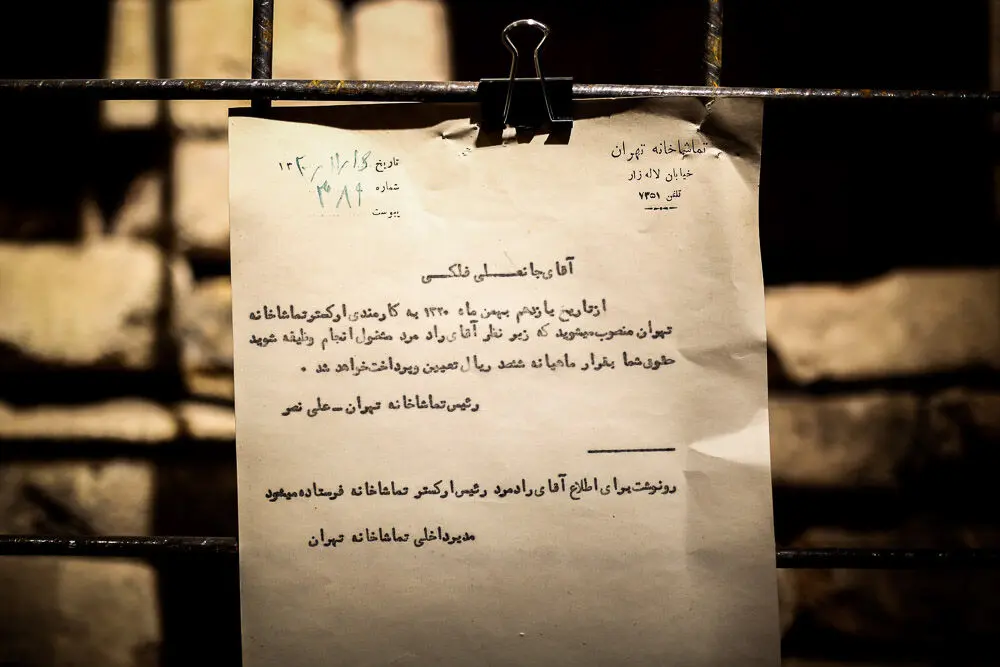 تماشاخانه تهران
خیابان لاله زار
تلفن ۷۳۵۱
تاریخ
شماره ۳۰۸۹
پیوست
آقای جانعلی فلکی
از تاریخ یازدهم بهمن ماه ۱۳۲۰ به کارمندی ارکستر تماشاخانه
تهران منصوب میشوید که زیر نظر آقای راد مرد مشغول انجام وظیفه شوید
حقوق شما بقرار ماهیانه ششصد ریال تعیین و پرداخت خواهد شد .
رئیس تماشاخانه تهران – علی نصر
رونوشت برای اطلاع آقای رادمرد رئیس ارکستر تماشاخانه فرستاده میشود
مدیر داخلی تماشاخانه تهران